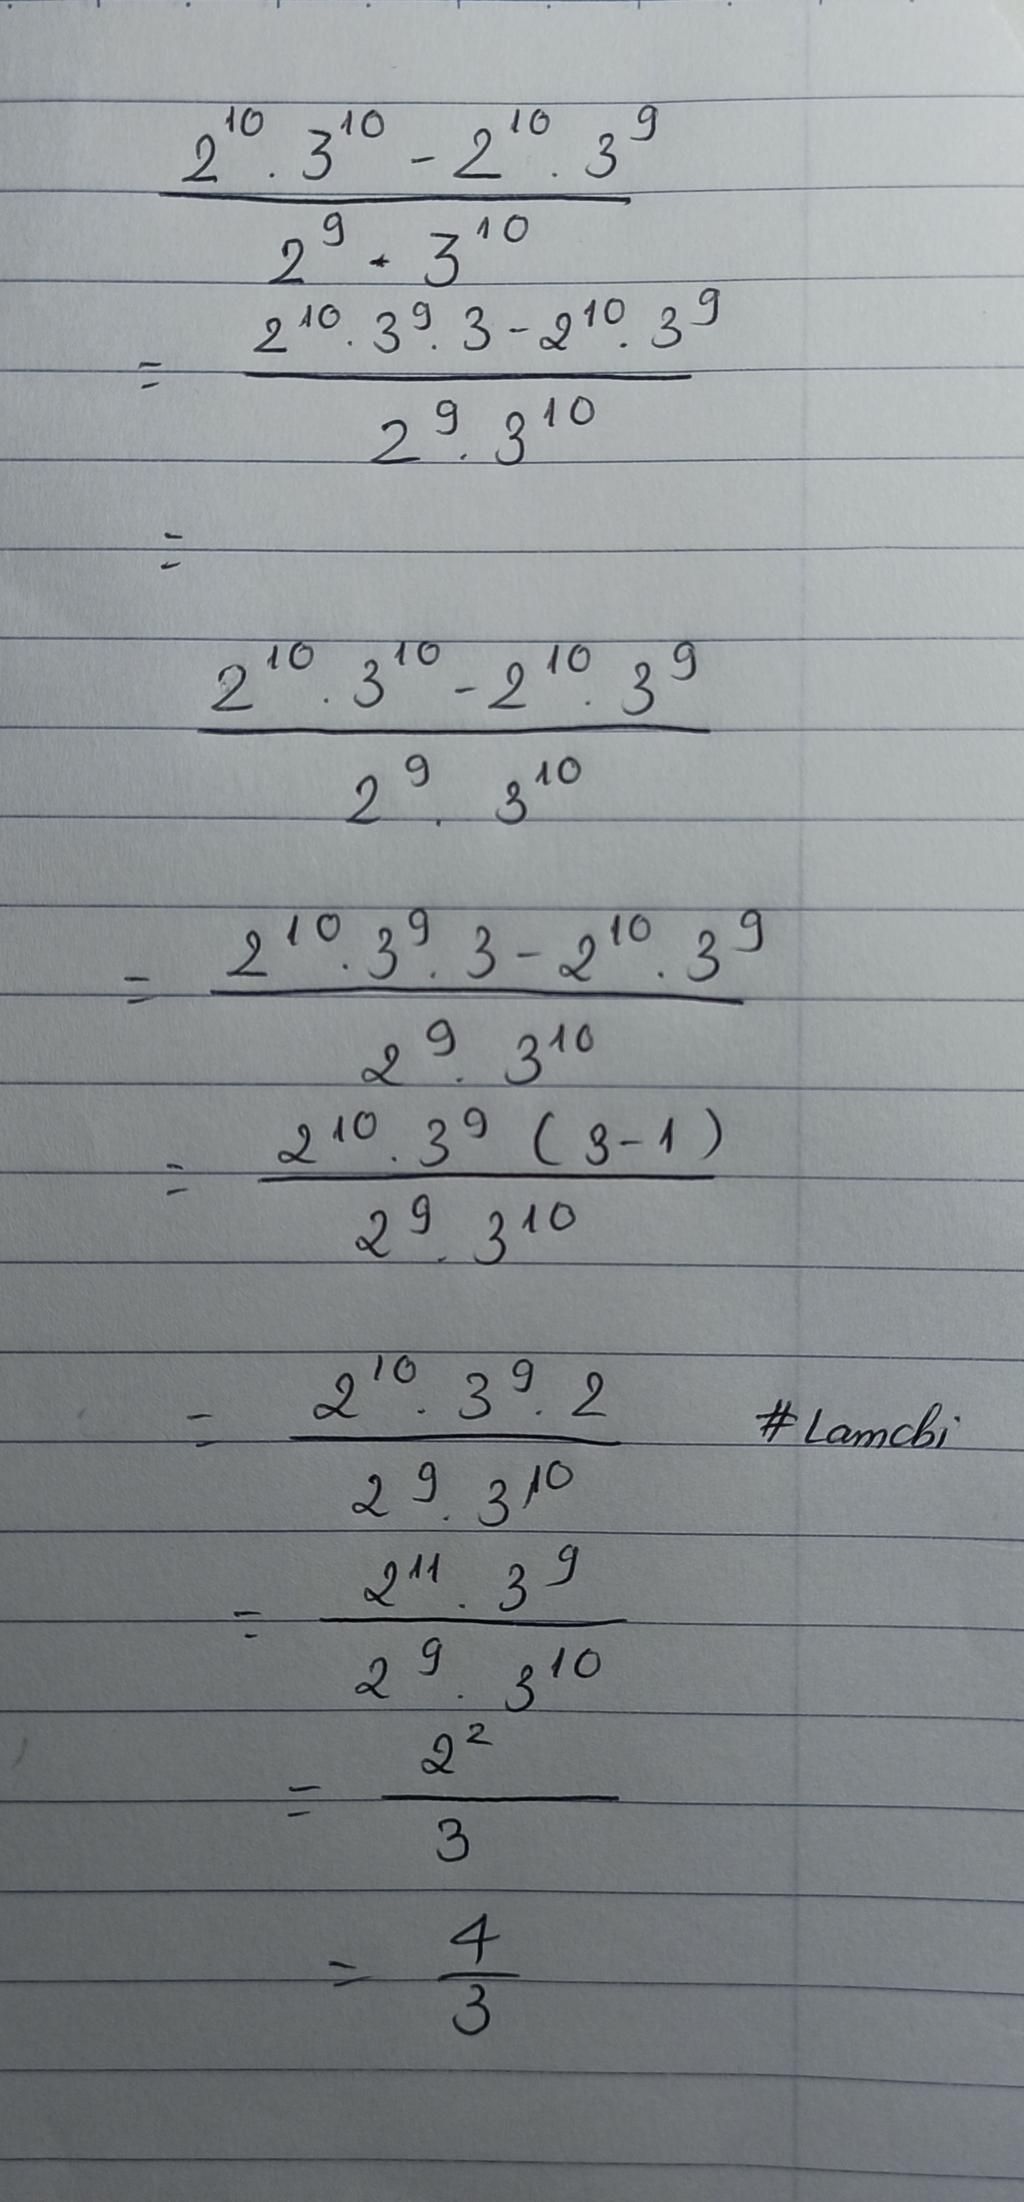 2^10 . 3^10 - 2^10 . 3^9
2^9 . 3^10
= 2^10 . 3^9 . 3 - 2^10 . 3^9
2^9 . 3^10
=
2^10 . 3^10 - 2^10 . 3^9
2^9 . 3^10
= 2^10 . 3^9 . 3 - 2^10 . 3^9
2^9 . 3^10
= 2^10 . 3^9 (3 - 1)
2^9 . 3^10
= 2^10 . 3^9 . 2 #Lamchi
2^9 . 3^10
= 2^11 . 3^9
2^9 . 3^10
= 2^2
3
= 4
3